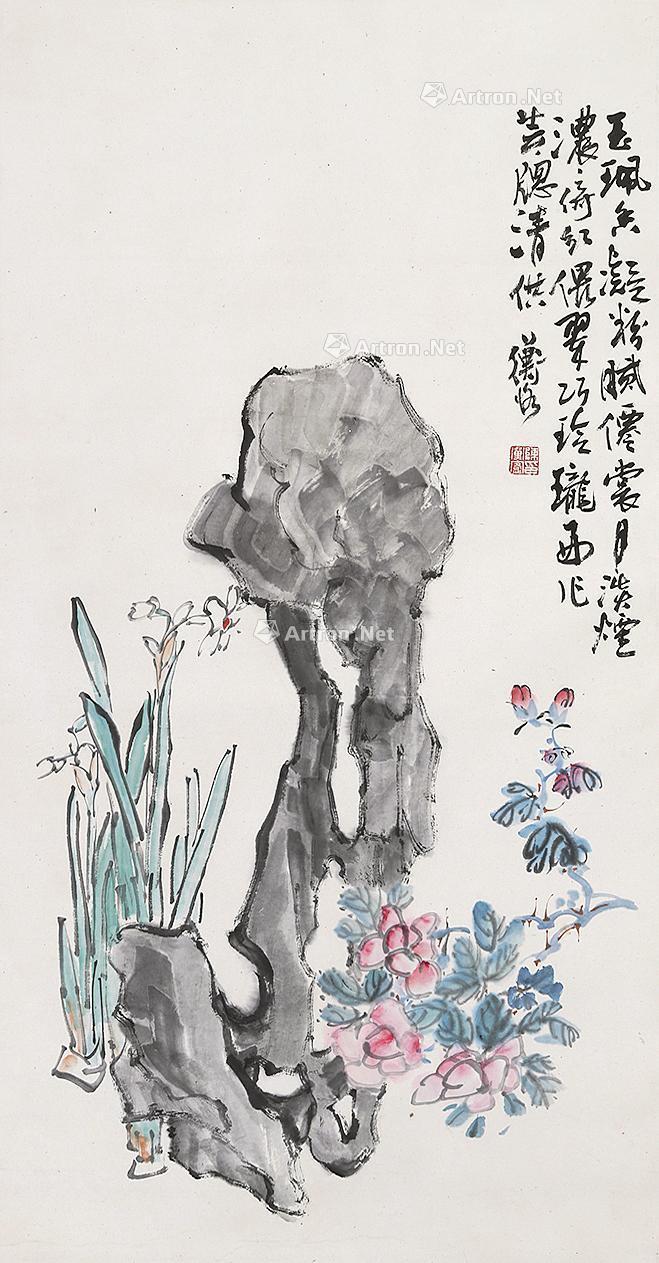 玉珮香凝粉膩僊裳月淡煙
濃倚紅偎翠巧玲瓏再作
芸牕清供 衡恪
Artron.Net
Artron.Net
Artron.Net